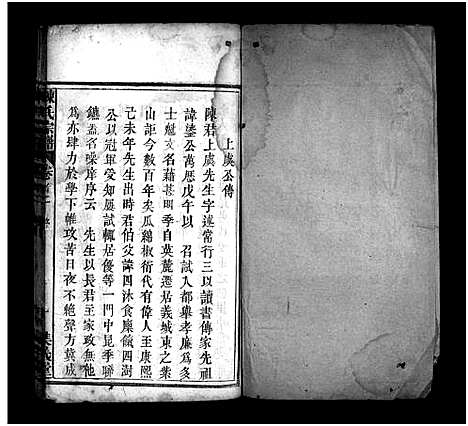 上虞公傳
陳君上虞先生字遂當行三以讀書傳家先祖
諱鎣公萬曆戊午以 召試入都舉孝廉為多
士魁文名藉甚明季自英麓遷居義城東之葉
山距今數百年矣瓜綿椒衍代有偉人至康熙
己未年先生出時君伯父諱四沐食廩餼四澍
公以冠軍受知屢試輒居優等一門中昆季聯
鑣蓋名噪庠序云 先生以長君主家政無他
為亦肆力於學下帷攻苦日夜不絕聲方冀成
陳氏宗譜
卷首